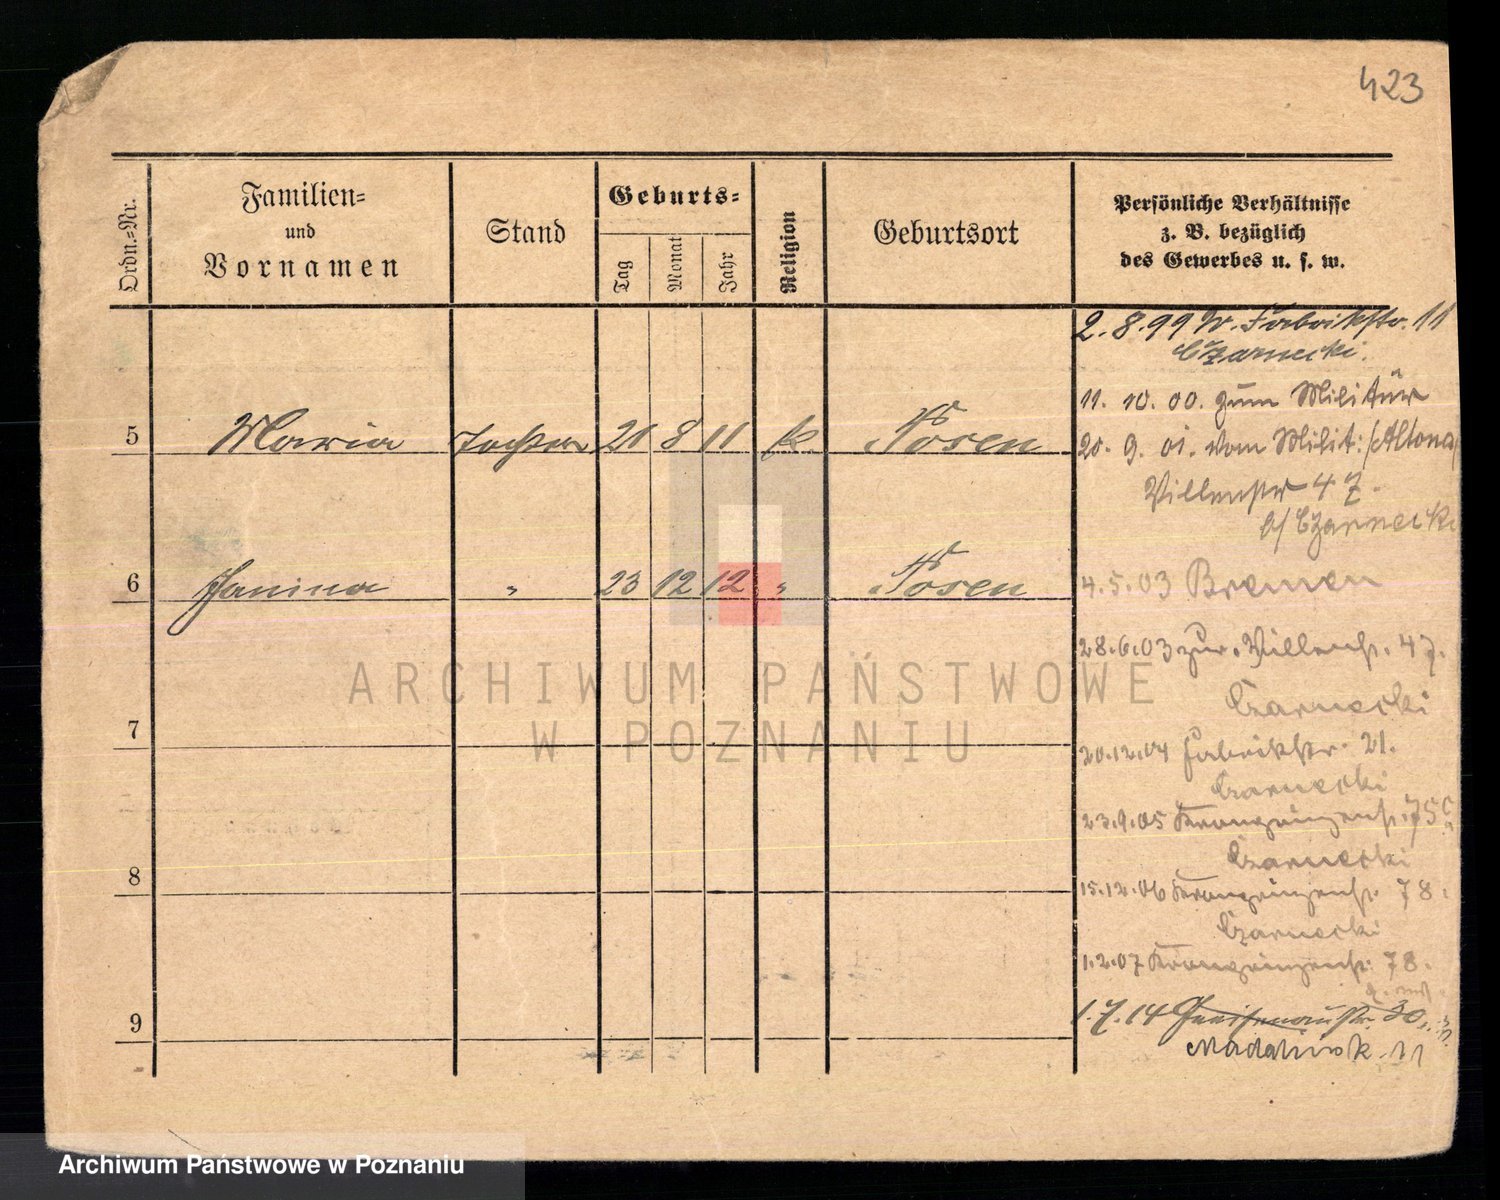 423
Ordn.-Nr.
Familien-
und
Vornamen
Stand
Geburts-
Tag
Monat
Jahr
Religion
Geburtsort
Persönliche Verhältnisse
z. B. bezüglich
des Gewerbes u. s. w.
2. 8. 99 W. Fabrikstr. 11
Czarnecki.
11. 10. 00. zum Militär
5 Maria Tochter 21 8 11 k. Posen
20. 9. 01. vom Milit: (Altona)
Villenstr 47.
b/ Czarnecki
6 Janina " 23 12 12 " Posen
4. 5. 03 Bremen
28. 6. 03 zur. Villenstr. 47.
Czarnecki
7
20. 12. 04 Fabrikstr. 21.
Czarnecki
23. 9. 05 Kronprinzenstr. 75
Czarnecki
8
15. 12. 06 Kronprinzenstr. 78.
Czarnecki
1. 2. 07 Kronprinzenstr. 78.
9
1. 7. 14 Gneisenaustr. 30
Madalinsk. 11
ARCHIWUM PAŃSTWOWE
W POZNANIU
Archiwum Państwowe w Poznaniu